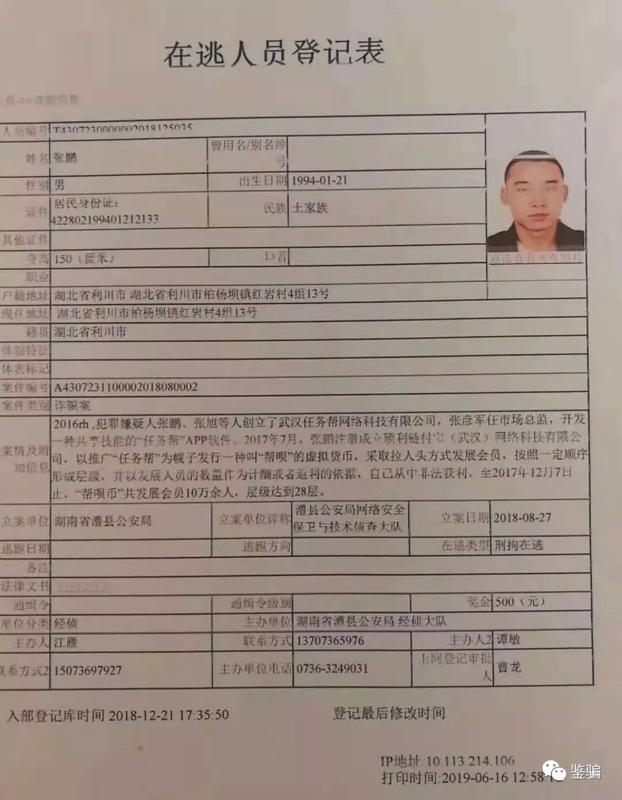 在逃人员登记表
人员编号 T4307230000002018125035
姓名 张鹏 曾用名/别名绰号
性别 男 出生日期 1994-01-21
证件 居民身份证: 422802199401212133 民族 土家族
其他证件
身高 150（厘米） 口音
职业
户籍地址 湖北省利川市 湖北省利川市柏杨坝镇红岩村4组13号
现住地址 湖北省利川市柏杨坝镇红岩村4组13号
籍贯 湖北省利川市
体貌特征
体表标记
案件编号 A4307231100002018080002
案件类别 诈骗案
案情及附加信息
2016rh,犯罪嫌疑人张鹏、张旭等人创立了武汉任务帮网络科技有限公司，张彦军任市场总监，开发
一种共享技能的"任务帮"APP软件。2017年7月，张鹏注册成立顺利链付宝（武汉）网络科技有限公
司，以推广"任务帮"为幌子发行一种叫"帮呗"的虚拟货币，采取拉人头方式发展会员，按照一定顺序
形成层级，并以发展人员的数量作为计酬或者返利的依据，自己从中非法获利。至2017年12月7日
止，"帮呗币"共发展会员10万余人，层级达到28层。
立案单位 湖南省澧县公安局 立案单位详称 澧县公安局网络安全保卫与技术侦查大队 立案日期 2018-08-27
逃跑日期 逃跑方向 在逃类型 刑拘在逃
备注
法律文书
通缉令 通缉令级别 奖金 500（元）
单位分类 经侦 主办单位 湖南省澧县公安局 经侦大队
主办人 江雁 联系方式 13707365976 主办人2 谭敏
联系方式2 15073697927 主办单位电话 0736-3249031 上网登记审批人 曹龙
入部登记库时间 2018-12-21 17:35:50 登记最后修改时间
IP地址 10.113.214.106
打印时间:2019-06-16 12:58
鉴骗